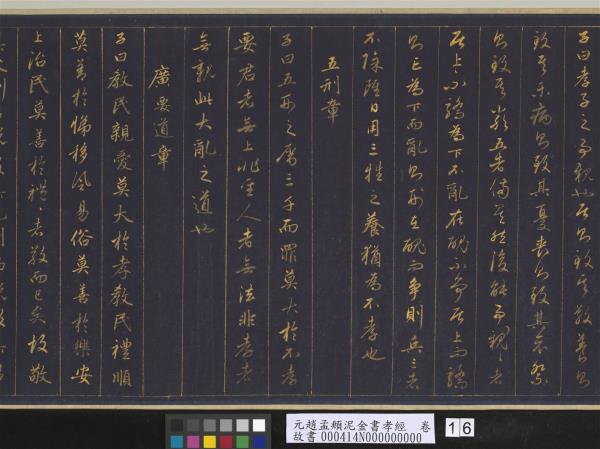 子曰孝子之事親也居則致其敬養則
致其樂病則致其憂喪則致其哀祭
則致其嚴五者備矣然後能事親事親者
居上不驕為下不亂在醜不爭居上而驕
則亡為下而亂則刑在醜而爭則兵三者
不除雖日用三牲之養猶為不孝也
五刑章
子曰五刑之屬三千而罪莫大於不孝
要君者無上非聖人者無法非孝者
無親此大亂之道也
廣要道章
子曰教民親愛莫大於孝教民禮順
莫善於悌移風易俗莫善於樂安
上治民莫善於禮禮者敬而已矣故敬
元趙孟頫泥金書孝經 卷
故書 000414N000000000
16